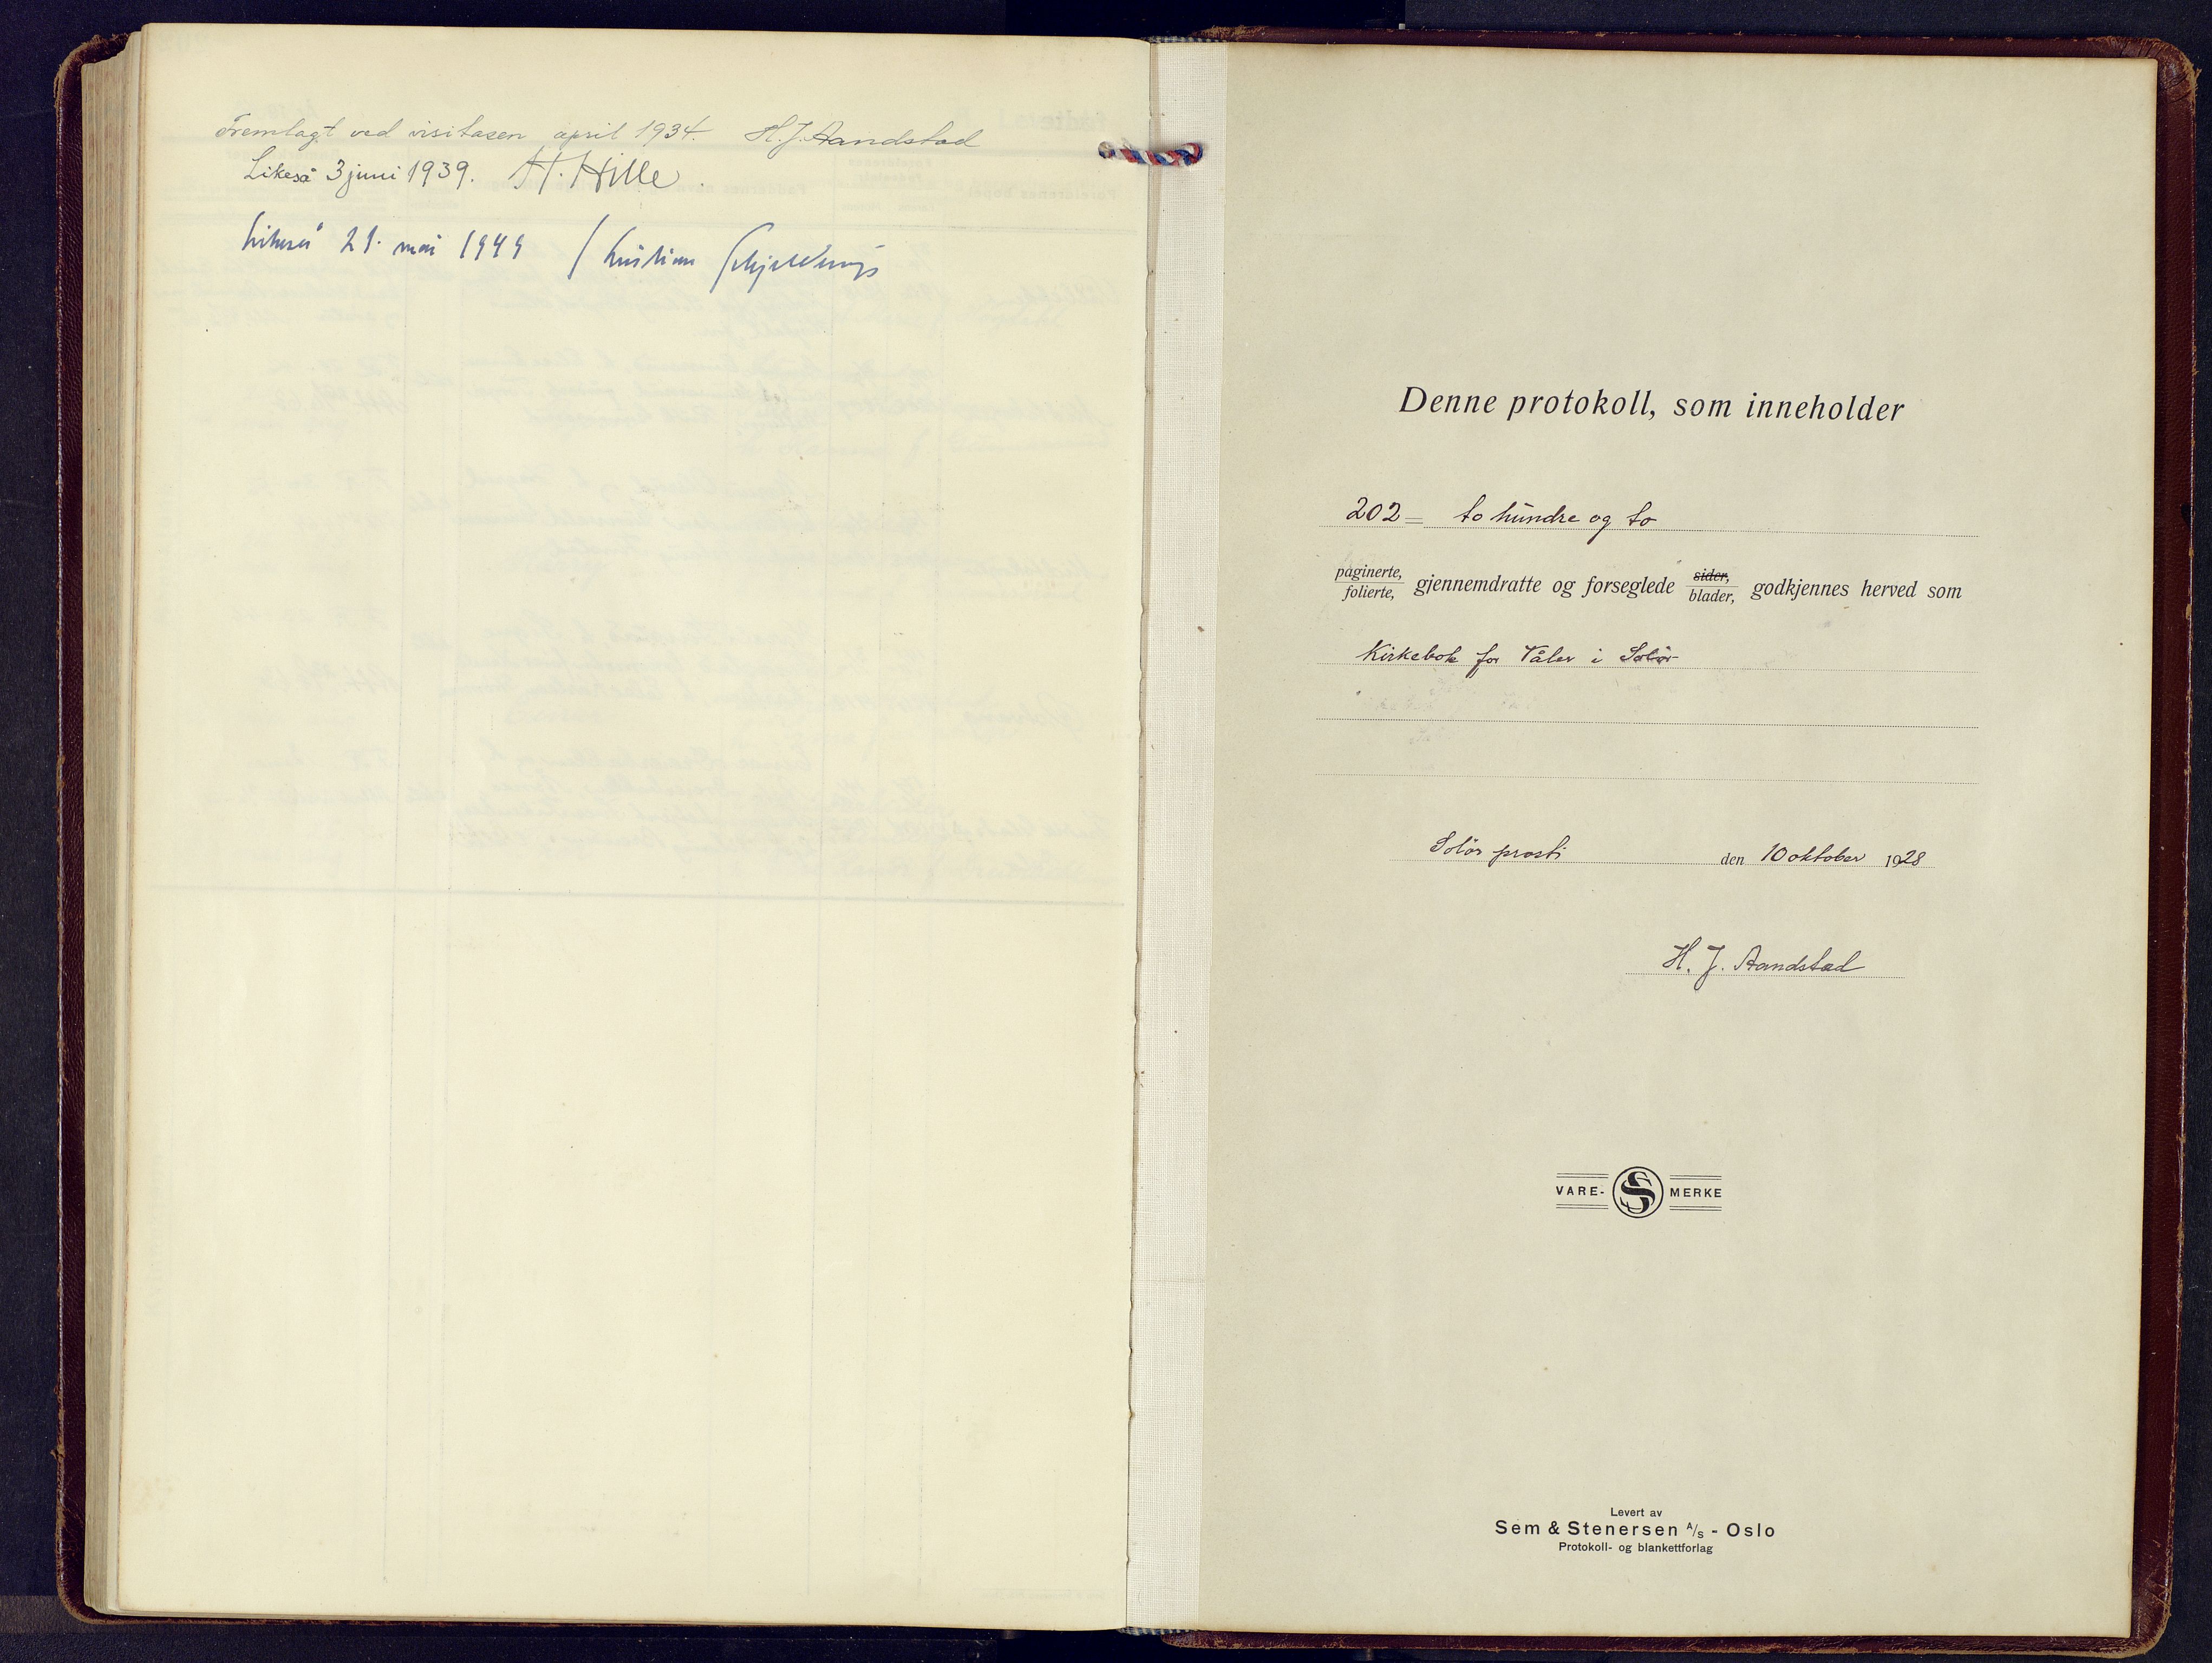 Fremlagt ved visitasen april 1934. H. J. Aandstad
Likeså 3 juni 1939. H. Hille.
Likeså 21. mai 1949 / Kristian Schjelderup
Denne protokoll, som inneholder
202 = to hundre og to
paginerte, folierte, gjennemdratte og forseglede sider, blader, godkjennes herved som
Kirkebok for Våler i Solör
Solör prosti den 10 oktober 1928
H. J. Aandstad
VARE- S MERKE
Levert av
Sem & Stenersen A/S - Oslo
Protokoll- og blankettforlag